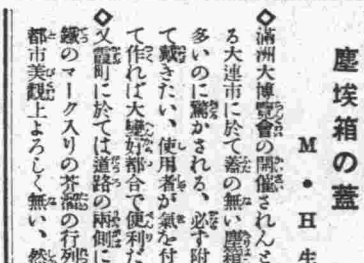 塵埃箱の蓋
M・H生
◇滿洲大博覽會の開催されんと
る大連市に於て蓋の無い塵箱
多いのに驚かされる、必ず附
て戴きたい、使用者が氣を付
て作れば大變好都合で便利だ
◇又霞町に於ては道路の兩側に
鐵のマーク入りの芥溜の行列
都市美觀上よろしく無い、然